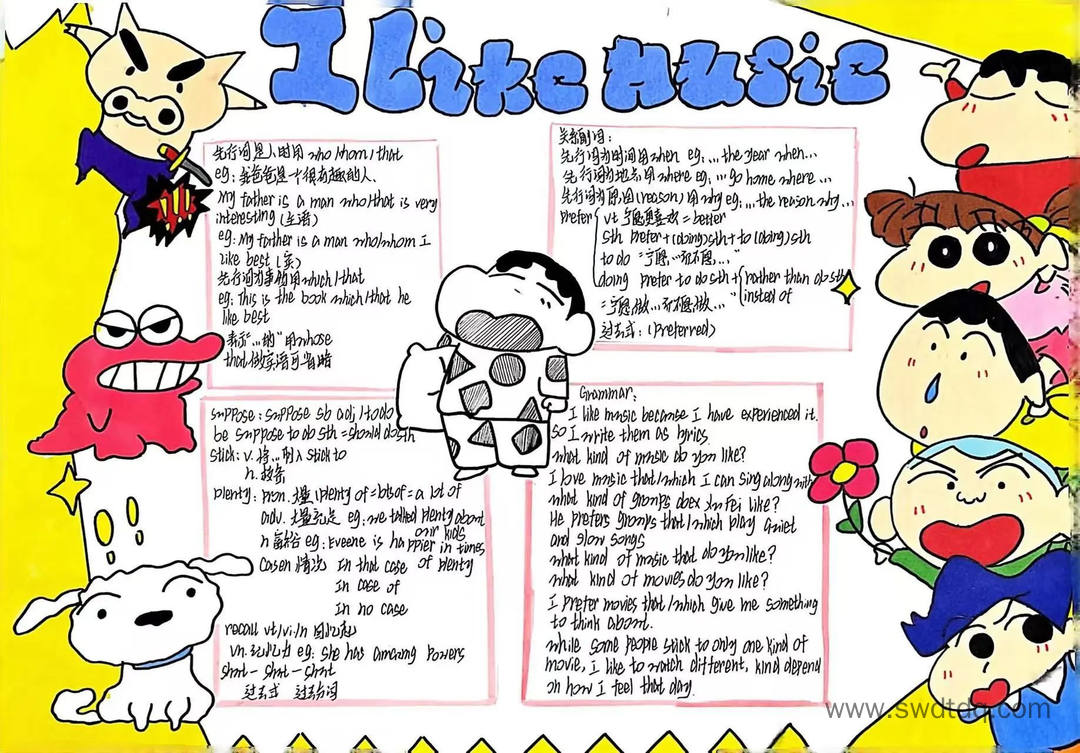 I Like Music
先行词是人时用 who/whom/that
eg: 我爸爸是一个很有趣的人
My father is a man who/that is very
interesting (主语)
eg: My father is a man who/whom I
like best (宾)
先行词为事物用which/that
eg: This is the book which/that he
like best
表示"…的"用whose
that做宾语可省略
关系副词:
先行词为时间用when eg: ...the year when...
先行词为地点用where eg: ...go home where...
先行词为原因(reason)用why eg: ...the reason why...
prefer vt 宁愿更喜欢 = better
sth prefer + (doing)sth + to (doing)sth
to do "宁愿…而不愿…"
doing prefer to do sth + rather than do sth
instead of
"宁愿做…不愿做…"
过去式: (Preferred)
suppose: suppose sb adj/to do
be suppose to do sth = should do sth
stick: v. 将…刺入 stick to
n.
plenty: pron. 大量 plenty of = lots of = a lot of
adv. 大量充足 eg: we talked plenty about
our kids
n 富裕 eg: Eveene is happier in times
of plenty
Casen 情况 in that case
in case of
in no case
recall vt/vi/n 回忆起
vn. 记忆力 eg: she has amazing powers
shut - shut - shut
过去式 过去分词
Grammar:
I like music because I have experienced it.
so I write them as lyrics
what kind of music do you like?
I love music that/which I can sing along with
what kind of groups does Xu Fei like?
He prefers groups that/which play quiet
and slow songs
what kind of music that do you like?
what kind of movies do you like?
I prefer movies that/which give me something
to think about.
while some people stick to only one kind of
movie, I like to watch different, kind depend
on how I feel that day.
www.swdtdq.com